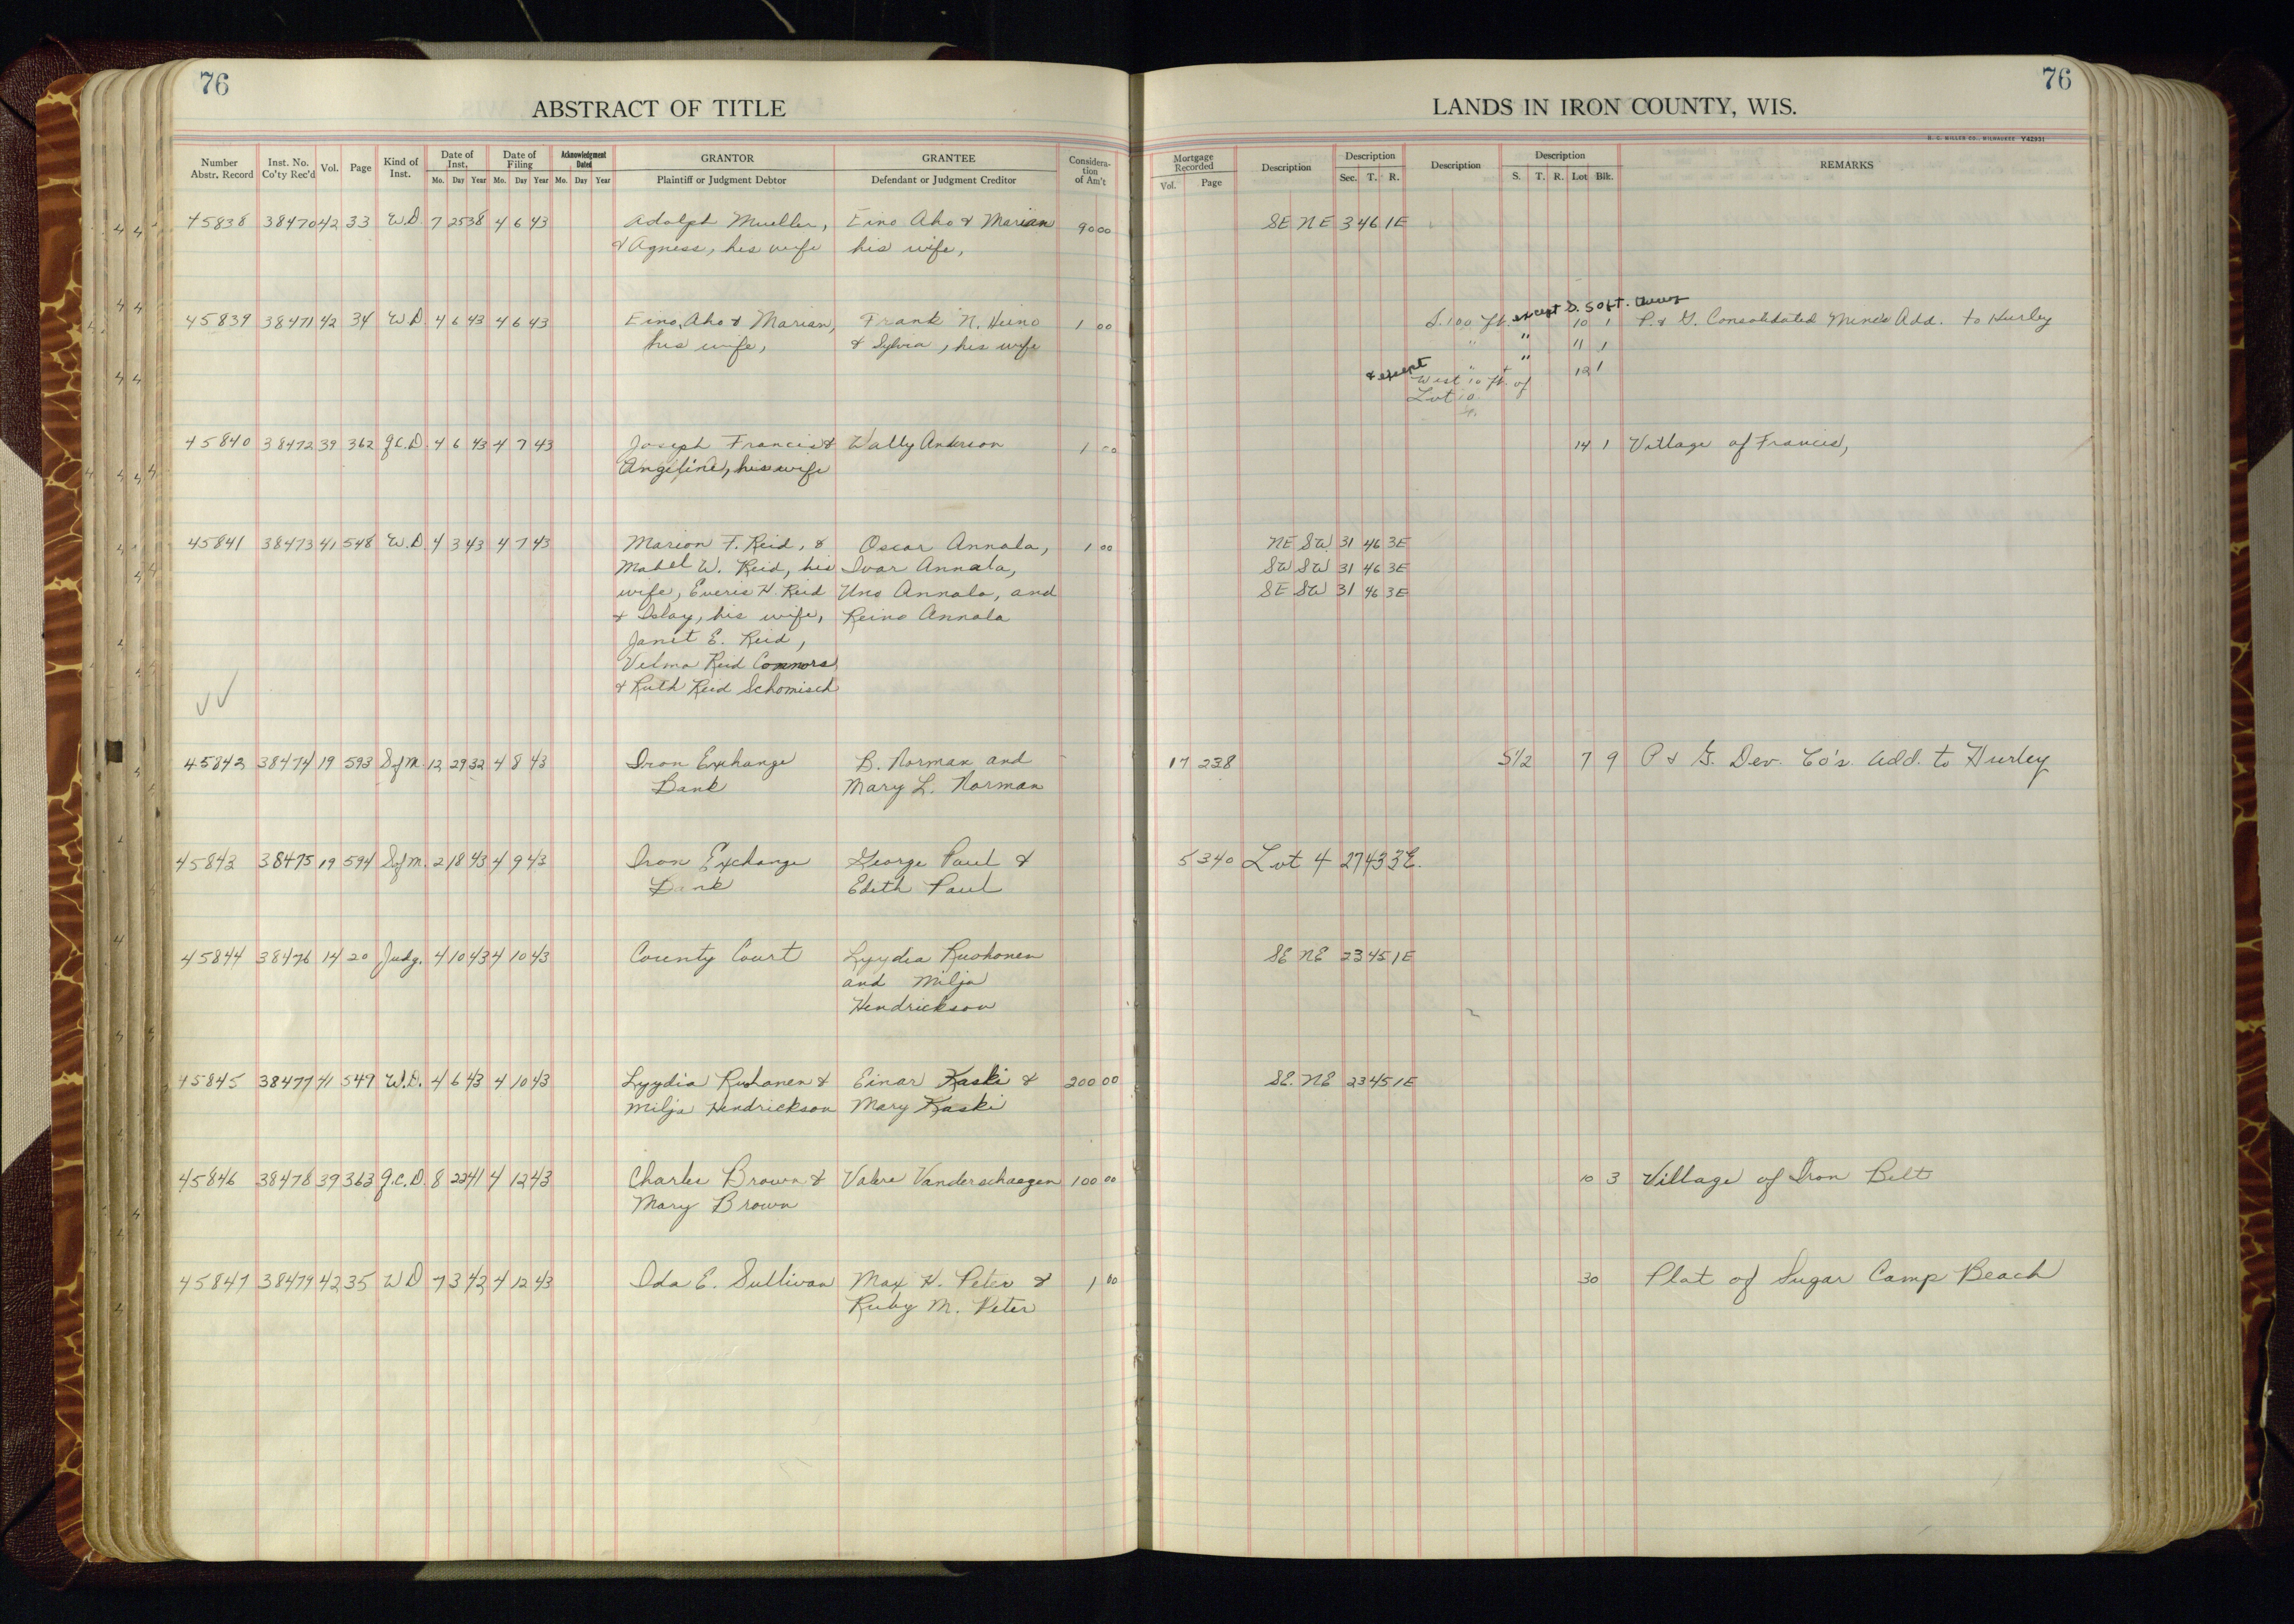 76
76
ABSTRACT OF TITLE
LANDS IN IRON COUNTY, WIS.
H. C. MILLER CO., MILWAUKEE Y42931
Number Abstr. Record
Inst. No. Co'ty Rec'd
Vol.
Page
Kind of Inst.
Date of Inst.
Mo. Day Year
Date of Filing
Mo. Day Year
Acknowledgment Dated
Mo. Day Year
GRANTOR
Plaintiff or Judgment Debtor
GRANTEE
Defendant or Judgment Creditor
Considera-tion of Am't
Mortgage Recorded
Vol. Page
Description
Description
Sec. T. R.
Description
Description
S. T. R. Lot Blk.
REMARKS
45838 38470 42 33 W.D. 7 25 38 4 6 43 Adolph Mueller, Eino Aho & Marian 90 00 SE NE 3 46 1E
& Agness, his wife his wife,
except S. 50 ft.
45839 38471 42 34 W.D. 4 6 43 4 6 43 Eino Aho & Marian, Frank N. Heino 1 00 S. 100 ft. 10 1 P. & G. Consolidated Mines Add. to Hurley
his wife, & Sylvia, his wife " " 11 1
& except " " 12 1
West 10 ft. of
Lot 10
45840 38472 39 362 Q.C.D. 4 6 43 4 7 43 Joseph Francis & Wally Anderson 1 00 14 1 Village of Francis,
Angeline, his wife
45841 38473 41 548 W.D. 4 3 43 4 7 43 Marion F. Reid, & Oscar Annala, 1 00 NE SW 31 46 3E
Mabel W. Reid, his Ivar Annala, SW SW 31 46 3E
wife, Everis H. Reid Uno Annala, and SE SW 31 46 3E
& Islay, his wife, Reino Annala
Janet E. Reid,
Velma Reid Connors
& Ruth Reid Schomisch
45842 38474 19 593 S of M. 12 29 32 4 8 43 Iron Exchange B. Norman and 17 238 S1/2 7 9 P & G. Dev. Co's. Add. to Hurley
Bank Mary L. Norman
45843 38475 19 594 S of M. 2 18 43 4 9 43 Iron Exchange George Paul & 5 340 Lot 4 27 43 3E.
Bank Edith Paul
45844 38476 14 20 Judg. 4 10 43 4 10 43 County Court Lyydia Ruohonen SE NE 23 45 1E
and Milja
Hendrickson
45845 38477 41 549 W.D. 4 6 43 4 10 43 Lyydia Ruohonen & Einar Kaski & 200 00 SE. NE 23 45 1E
Milja Hendrickson Mary Kaski
45846 38478 39 363 Q.C.D. 8 22 41 4 12 43 Charles Brown & Valere Vanderschaegen 100 00 10 3 Village of Iron Belt
Mary Brown
45847 38479 42 35 W D 7 3 42 4 12 43 Ida E. Sullivan Max H. Peter & 1 00 30 Plat of Sugar Camp Beach
Ruby M. Peter